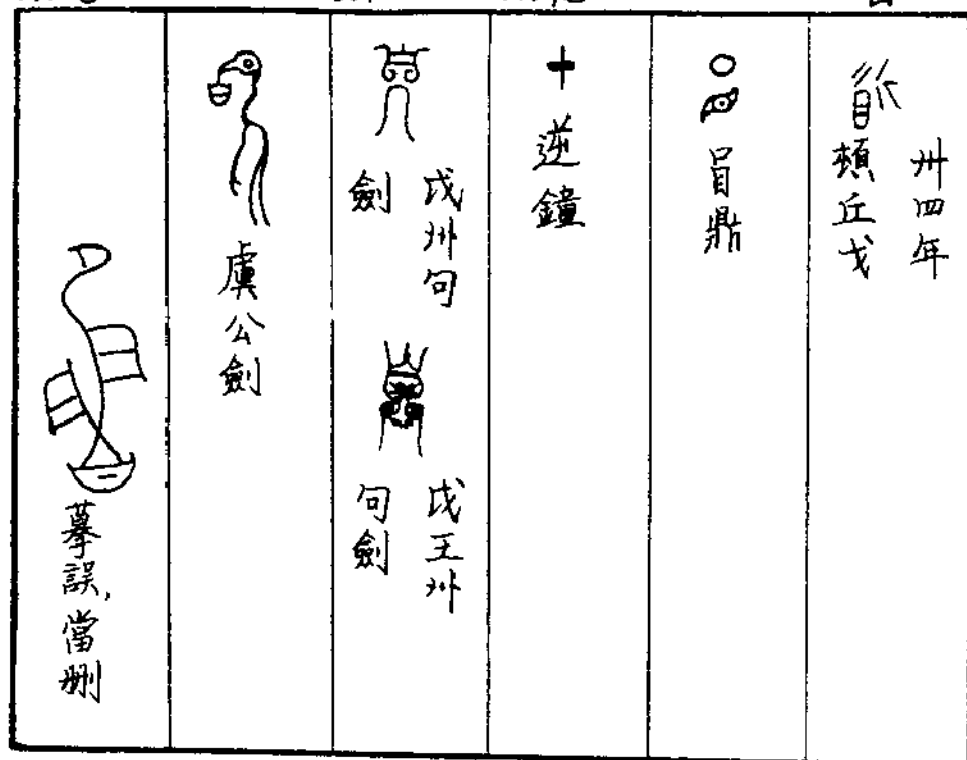 卅四年
頓丘戈
冒鼎
逆鐘
戉州句
劍
戉王州
句劍
虞公劍
摹誤，當刪